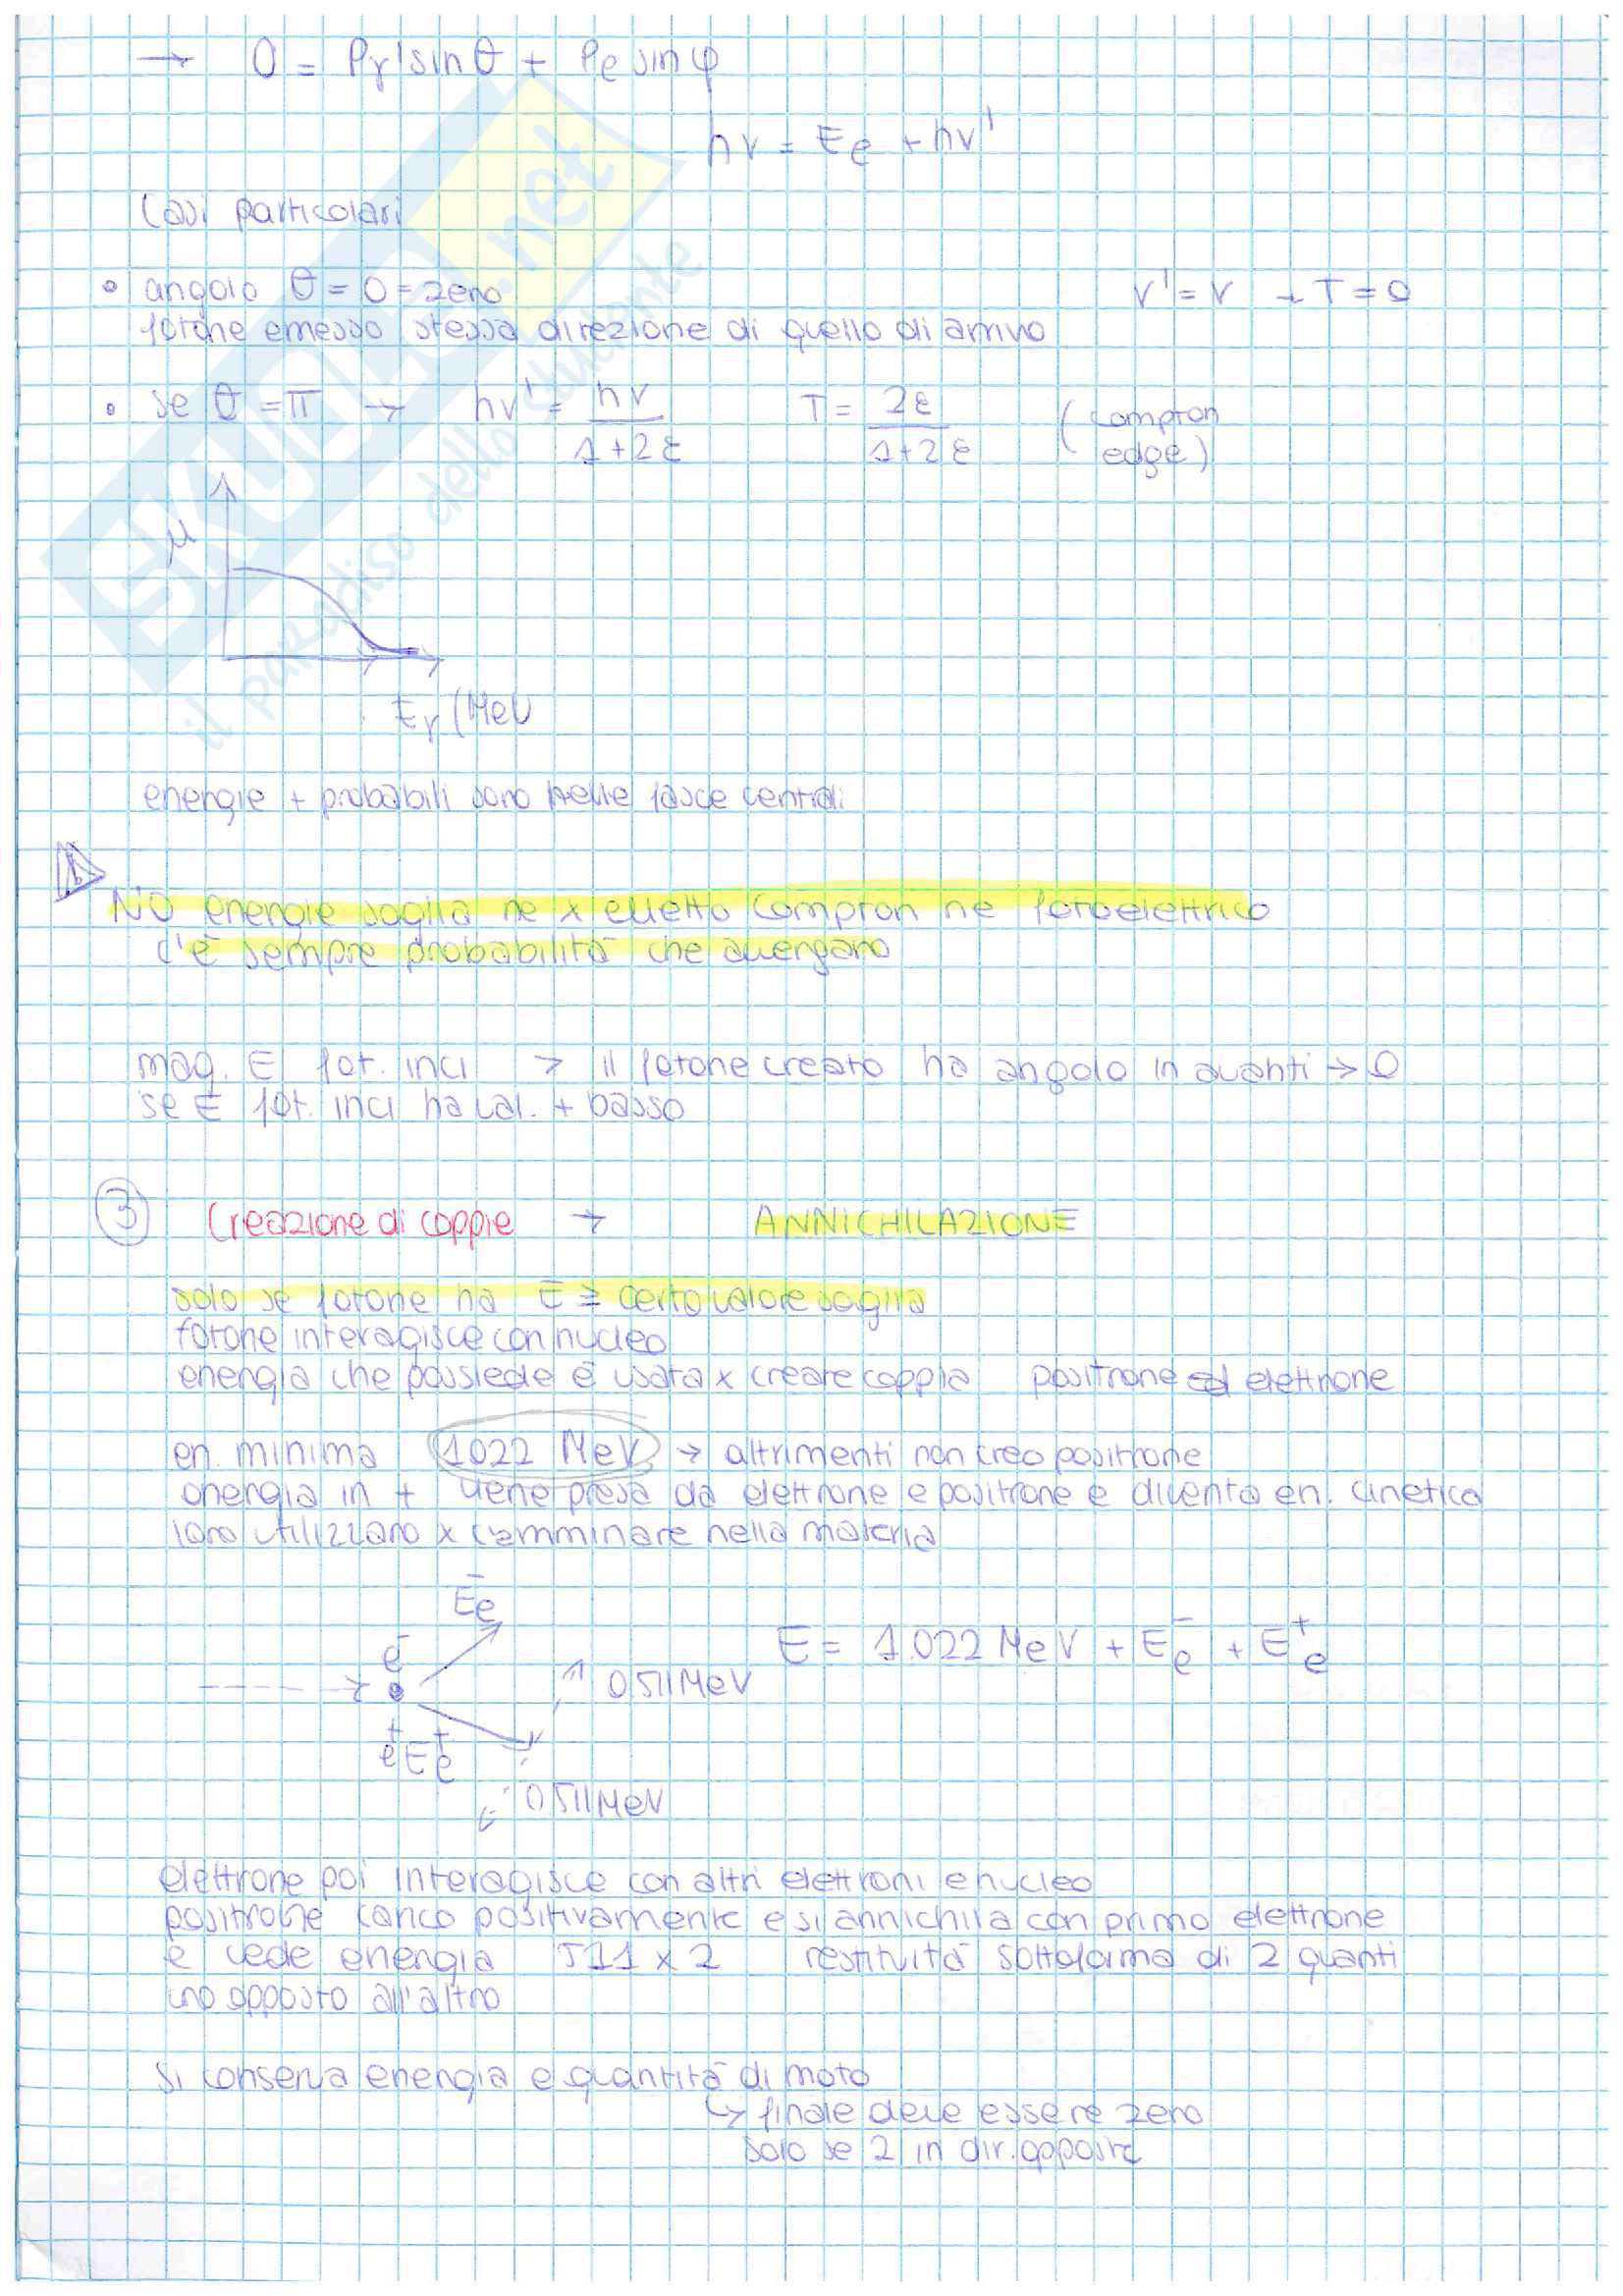 → 0 = Pγ' sinθ + Pe sinφ
hν = Ee + hν'
Casi particolari
• angolo θ = 0 = zero ν' = ν → T = 0
fotone emesso stessa direzione di quello di arrivo
• se θ = π → hν' = hν / 1+2ε T = 2ε / 1+2ε (compton edge)
μ
Eγ (MeV
energie + probabili sono nelle fasce centrali
NO energie soglia ne x effetto compton ne fotoelettrico
c'è sempre probabilità che avvengano
mag. E fot. inci > il fotone creato ha angolo in avanti → 0
se E fot. inci ha val. + basso
3 Creazione di coppie → ANNICHILAZIONE
solo se fotone ha E ≥ certo valore soglia
fotone interagisce con nucleo
energia che possiede è usata x creare coppia positrone ed elettrone
en. minima 1.022 MeV → altrimenti non creo positrone
energia in + viene presa da elettrone e positrone e diventa en. cinetica
loro utilizzano x camminare nella materia
Ee-
e-
E = 1.022 MeV + Ee- + Ee+
0.511 MeV
e+ Ee+
0.511 MeV
elettrone poi interagisce con altri elettroni e nucleo
positrone carico positivamente e si annichila con primo elettrone
e cede energia 511 x 2 restituita sottoforma di 2 quanti
uno opposto all'altro
si conserva energia e quantità di moto
↳ finale deve essere zero
solo se 2 in dir. opposte
SKUOLA.net
il paradiso dello studente